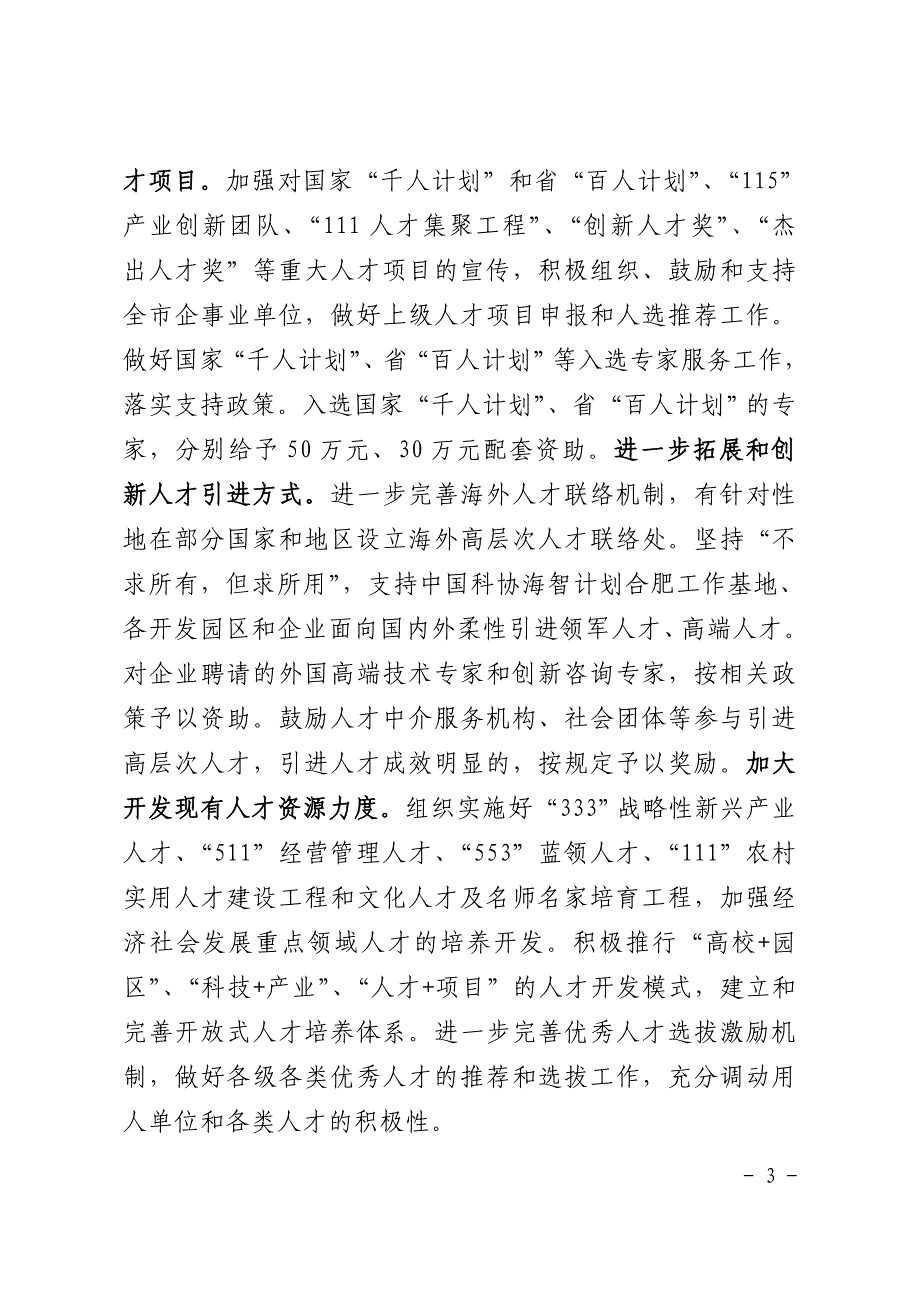 才项目。加强对国家“千人计划”和省“百人计划”、“115”
产业创新团队、“111 人才集聚工程”、“创新人才奖”、“杰
出人才奖”等重大人才项目的宣传，积极组织、鼓励和支持
全市企事业单位，做好上级人才项目申报和人选推荐工作。
做好国家“千人计划”、省“百人计划”等入选专家服务工作，
落实支持政策。入选国家“千人计划”、省“百人计划”的专
家，分别给予 50 万元、30 万元配套资助。进一步拓展和创
新人才引进方式。进一步完善海外人才联络机制，有针对性
地在部分国家和地区设立海外高层次人才联络处。坚持“不
求所有，但求所用”，支持中国科协海智计划合肥工作基地、
各开发园区和企业面向国内外柔性引进领军人才、高端人才。
对企业聘请的外国高端技术专家和创新咨询专家，按相关政
策予以资助。鼓励人才中介服务机构、社会团体等参与引进
高层次人才，引进人才成效明显的，按规定予以奖励。加大
开发现有人才资源力度。组织实施好“333”战略性新兴产业
人才、“511”经营管理人才、“553”蓝领人才、“111”农村
实用人才建设工程和文化人才及名师名家培育工程，加强经
济社会发展重点领域人才的培养开发。积极推行“高校+园
区”、“科技+产业”、“人才+项目”的人才开发模式，建立和
完善开放式人才培养体系。进一步完善优秀人才选拔激励机
制，做好各级各类优秀人才的推荐和选拔工作，充分调动用
人单位和各类人才的积极性。
- 3 -